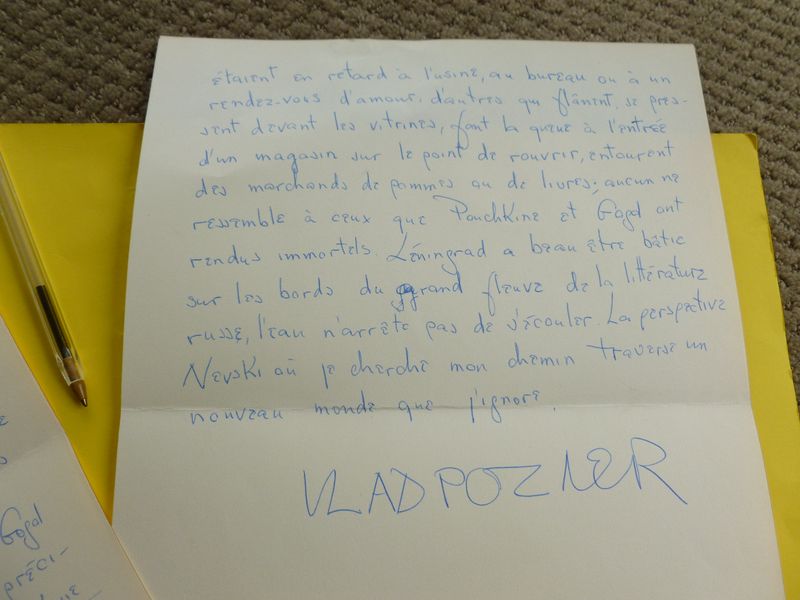 étaient en retard à l'usine, au bureau ou à un
rendez-vous d'amour, d'autres qui flânent, se pres-
sent devant les vitrines, font la queue à l'entrée
d'un magasin sur le point de rouvrir, entourent
des marchands de pommes ou de livres; aucun ne
ressemble à ceux que Pouchkine et Gogol ont
rendus immortels. Léningrad a beau être bâtie
sur les bords du grand fleuve de la littérature
russe, l'eau n'arrête pas de s'écouler. La perspective
Nevski où je cherche mon chemin traverse un
nouveau monde que j'ignore.
VLAD POZNER
Gogol
préci-